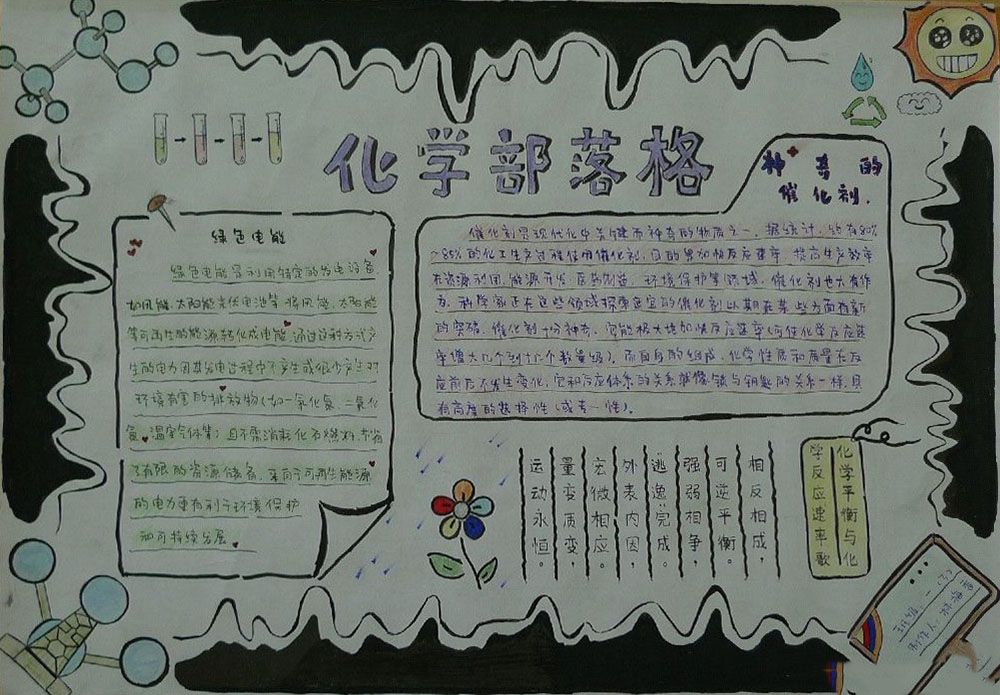 化学部落格
神奇的
催化剂.
绿色电能
绿色电能是利用特定的发电设备
如风能、太阳能光伏电池等,将风能、太阳能
等可再生的能源转化成电能,通过这种方式产
生的电力因其发电过程中不产生或很少产生对
环境有害的排放物(如一氧化氮、二氧化
氮、温室气体等)且不需消耗化石燃料,节省
了有限的资源储备,来自于可再生能源
的电力更有利于环境保护
和可持续发展。
催化剂是现代化中关键而神奇的物质之一。据统计,约有80%
~85%的化工生产过程使用催化剂,目的是加快反应速率,提高生产效率
在资源利用、能源开发、医药制造、环境保护等领域,催化剂也大有作
为,科学家正在这些领域探索适宜的催化剂以期在某些方面有新
的突破。催化剂十分神奇,它能极大地加快反应速率(可使化学反应速
率增大几个到十几个数量级),而自身的组成、化学性质和质量在反
应前后不发生变化,它和反应体系的关系就像锁与钥匙的关系一样,具
有高度的选择性(或专一性)。
化学平衡与化
学反应速率歌
相反相成,
可逆平衡。
强弱相争,
逃逸完成。
外表内因,
宏微相应。
量变质变,
运动永恒。